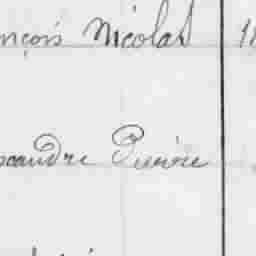 nçois Nicolas
xandre Pierre